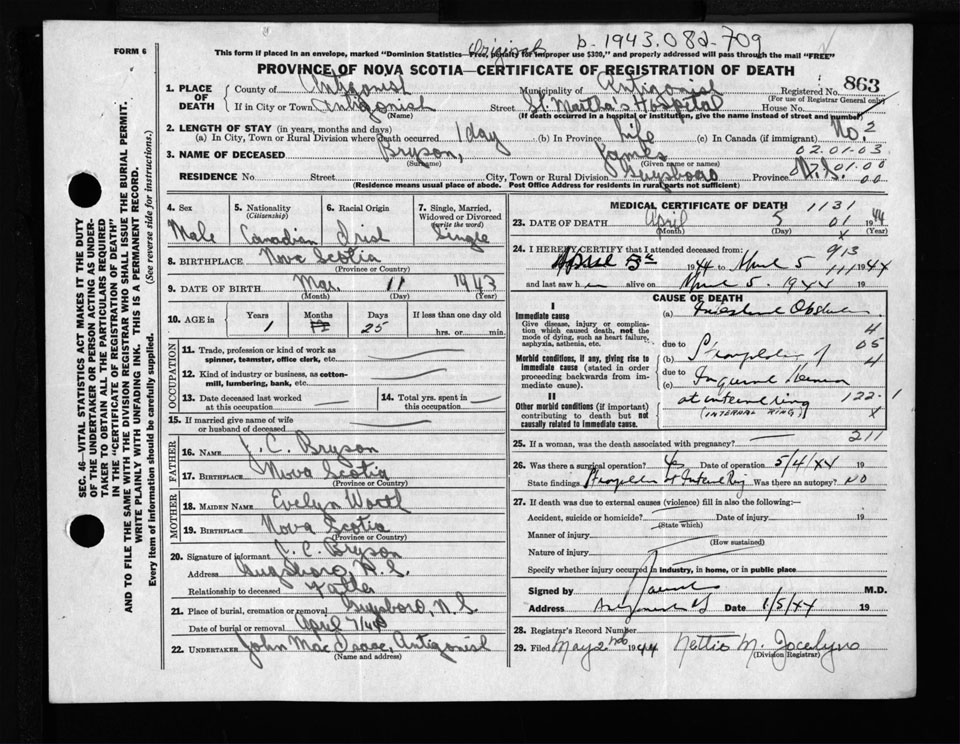 Original b-1943.082-709
FORM 6
This form if placed in an envelope, marked "Dominion Statistics—Free, penalty for improper use $300," and properly addressed will pass through the mail "FREE"
PROVINCE OF NOVA SCOTIA—CERTIFICATE OF REGISTRATION OF DEATH
1. PLACE OF DEATH County of Antigonish Municipality of Antigonish Registered No. 863
(For use of Registrar General only)
If in City or Town Antigonish Street St. Martha's Hospital House No.
(Name) (If death occurred in a hospital or institution, give the name instead of street and number)
No. 2
2. LENGTH OF STAY (in years, months and days)
(a) In City, Town or Rural Division where death occurred 1 day (b) In Province Life (c) In Canada (if immigrant)
02.01.03
3. NAME OF DECEASED Bryson, James
(Surname) (Given name or names)
07.01.00
RESIDENCE No. Street City, Town or Rural Division Guysboro Province N.S. 00
(Residence means usual place of abode. Post Office Address for residents in rural parts not sufficient)
SEC. 46—VITAL STATISTICS ACT MAKES IT THE DUTY
OF THE UNDERTAKER OR PERSON ACTING AS UNDER-
TAKER TO OBTAIN ALL THE PARTICULARS REQUIRED
IN THE "CERTIFICATE OF REGISTRATION OF DEATH"
AND TO FILE THE SAME WITH THE DIVISION REGISTRAR WHO SHALL ISSUE THE BURIAL PERMIT.
WRITE PLAINLY WITH UNFADING INK. THIS IS A PERMANENT RECORD.
Every item of information should be carefully supplied. (See reverse side for instructions.)
4. Sex 5. Nationality (Citizenship) 6. Racial Origin 7. Single, Married, Widowed or Divorced (write the word)
Male Canadian Irish Single
8. BIRTHPLACE Nova Scotia
(Province or Country)
9. DATE OF BIRTH Mar. 11 1943
(Month) (Day) (Year)
10. AGE in Years Months Days If less than one day old
1 25 hrs. or min.
OCCUPATION
11. Trade, profession or kind of work as spinner, teamster, office clerk, etc.
12. Kind of industry or business, as cotton-mill, lumbering, bank, etc.
13. Date deceased last worked at this occupation 14. Total yrs. spent in this occupation
15. If married give name of wife or husband of deceased
FATHER
16. Name J. C. Bryson
17. Birthplace Nova Scotia
(Province or Country)
MOTHER
18. MAIDEN NAME Evelyn
19. Birthplace Nova Scotia
(Province or Country)
20. Signature of informant J. C. Bryson
Address Guysboro, N.S.
Relationship to deceased Father
21. Place of burial, cremation or removal Guysboro, N.S.
Date of burial or removal April 7/44
22. UNDERTAKER John MacIsaac, Antigonish
(Name and address)
MEDICAL CERTIFICATE OF DEATH 1131
23. DATE OF DEATH April 5 01 1944
(Month) (Day) (Year)
x
24. I HEREBY CERTIFY that I attended deceased from: 913
April 5 1944 to April 5 1944
and last saw h alive on April 5. 1944 19
CAUSE OF DEATH
I
Immediate cause
Give disease, injury or complication which caused death, not the mode of dying, such as heart failure, asphyxia, asthenia, etc.
(a) Intestinal
4
due to 05
Morbid conditions, if any, giving rise to immediate cause (stated in order proceeding backwards from immediate cause).
(b) of 4
due to
(c) Inguinal Hernia
II
Other morbid conditions (if important) contributing to death but not causally related to immediate cause.
at internal ring 122-1
(INTERNAL RING) x
25. If a woman, was the death associated with pregnancy? 211
26. Was there a surgical operation? Date of operation 5/4/44 19
State findings at Internal Ring Was there an autopsy? NO
27. If death was due to external causes (violence) fill in also the following:
Accident, suicide or homicide? Date of injury 19
(State which)
Manner of injury
(How sustained)
Nature of injury
Specify whether injury occurred in industry, in home, or in public place
Signed by M.D.
Address Antigonish Date 1/5/44 19
28. Registrar's Record Number
29. Filed May 2nd 1944 Nettie M. Jocelyn
(Division Registrar)